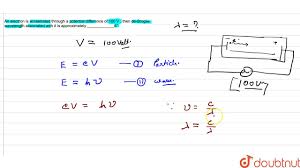 An electron is accelerated through a potential difference of 100 V, then de-Broglie
wavelength associated with it is approximately
λ = ?
V = 100 Volt.
E = eV — ① Particle.
E = hν — ② wave.
100V
eV = hν
∵ υ = c/λ
λ = c/λ
doubtnut